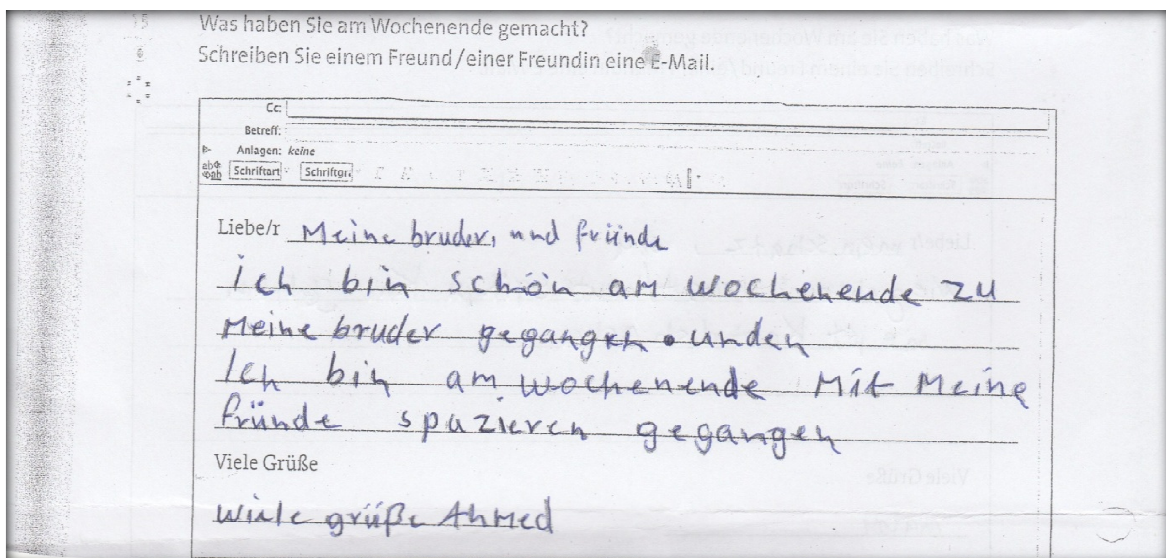 15 Was haben Sie am Wochenende gemacht?
6 Schreiben Sie einem Freund/einer Freundin eine E-Mail.
Cc:
Betreff:
Anlagen: keine
Schriftart Schriftgr.
Liebe/r Meine bruder, und fründe
ich bin schön am wochenende zu
Meine bruder gegangen. unden
Ich bin am wochenende Mit Meine
fründe spazieren gegangen
Viele Grüße
wiele grüße Ahmed